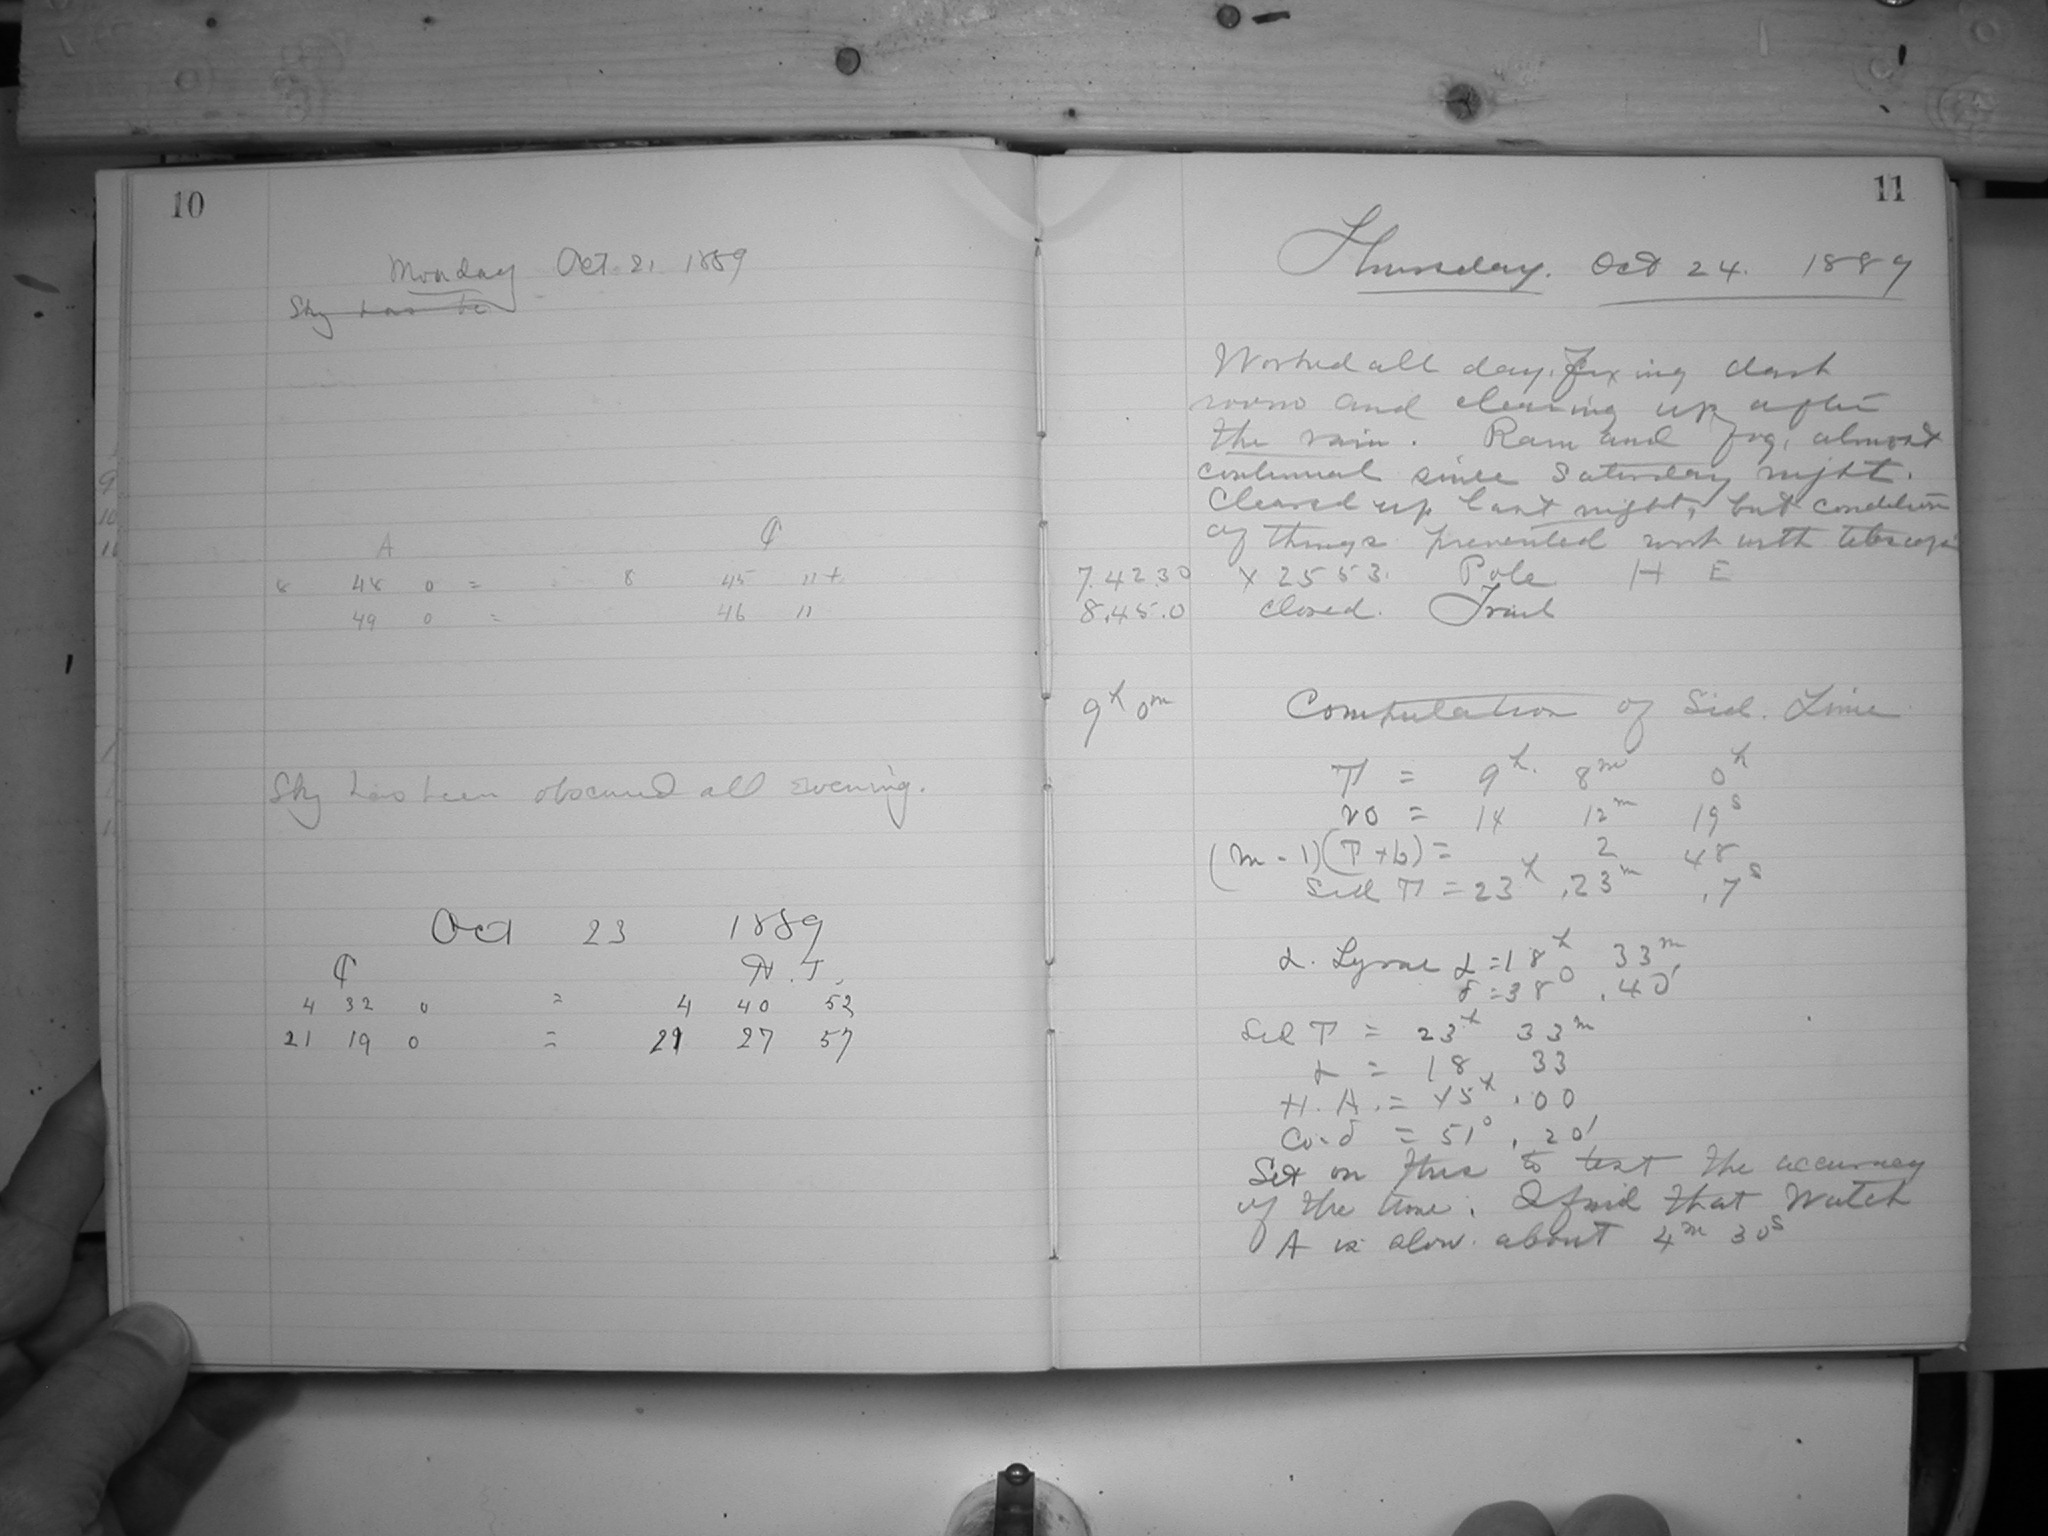 10
Monday Oct. 21 1889
Sky has be
A ₵
8 48 0 = 8 45 11 +
49 0 = 46 11
Sky has been obscured all evening.
Oct 23 1889
₵ N. T.
4 32 0 = 4 40 52
21 19 0 = 21 27 57
11
Thursday. Oct 24. 1889
Worked all day, fixing dark
room and clearing up after
the rain. Rain and fog, almost
continual since Saturday night.
Cleared up last night, but condition
of things prevented work with telescope
7.42.30 X 2553. Pole H E
8.45.0 Closed. Trail
9h 0m Computation of Sid. Time
T = 9h. 8m 0h
= 14 12m 19s
(m - 1)(T + b) = 2 48
Sid T = 23h .23m .7s
α. Lyrae α = 18h 33m
δ = 38° .40'
Sid T = 23h 33m
α = 18 33
H. A. = 5h .00
Co-δ = 51° . 20'
Set on this to test the accuracy
of the time. Find that Watch
A is slow about 4m 30s